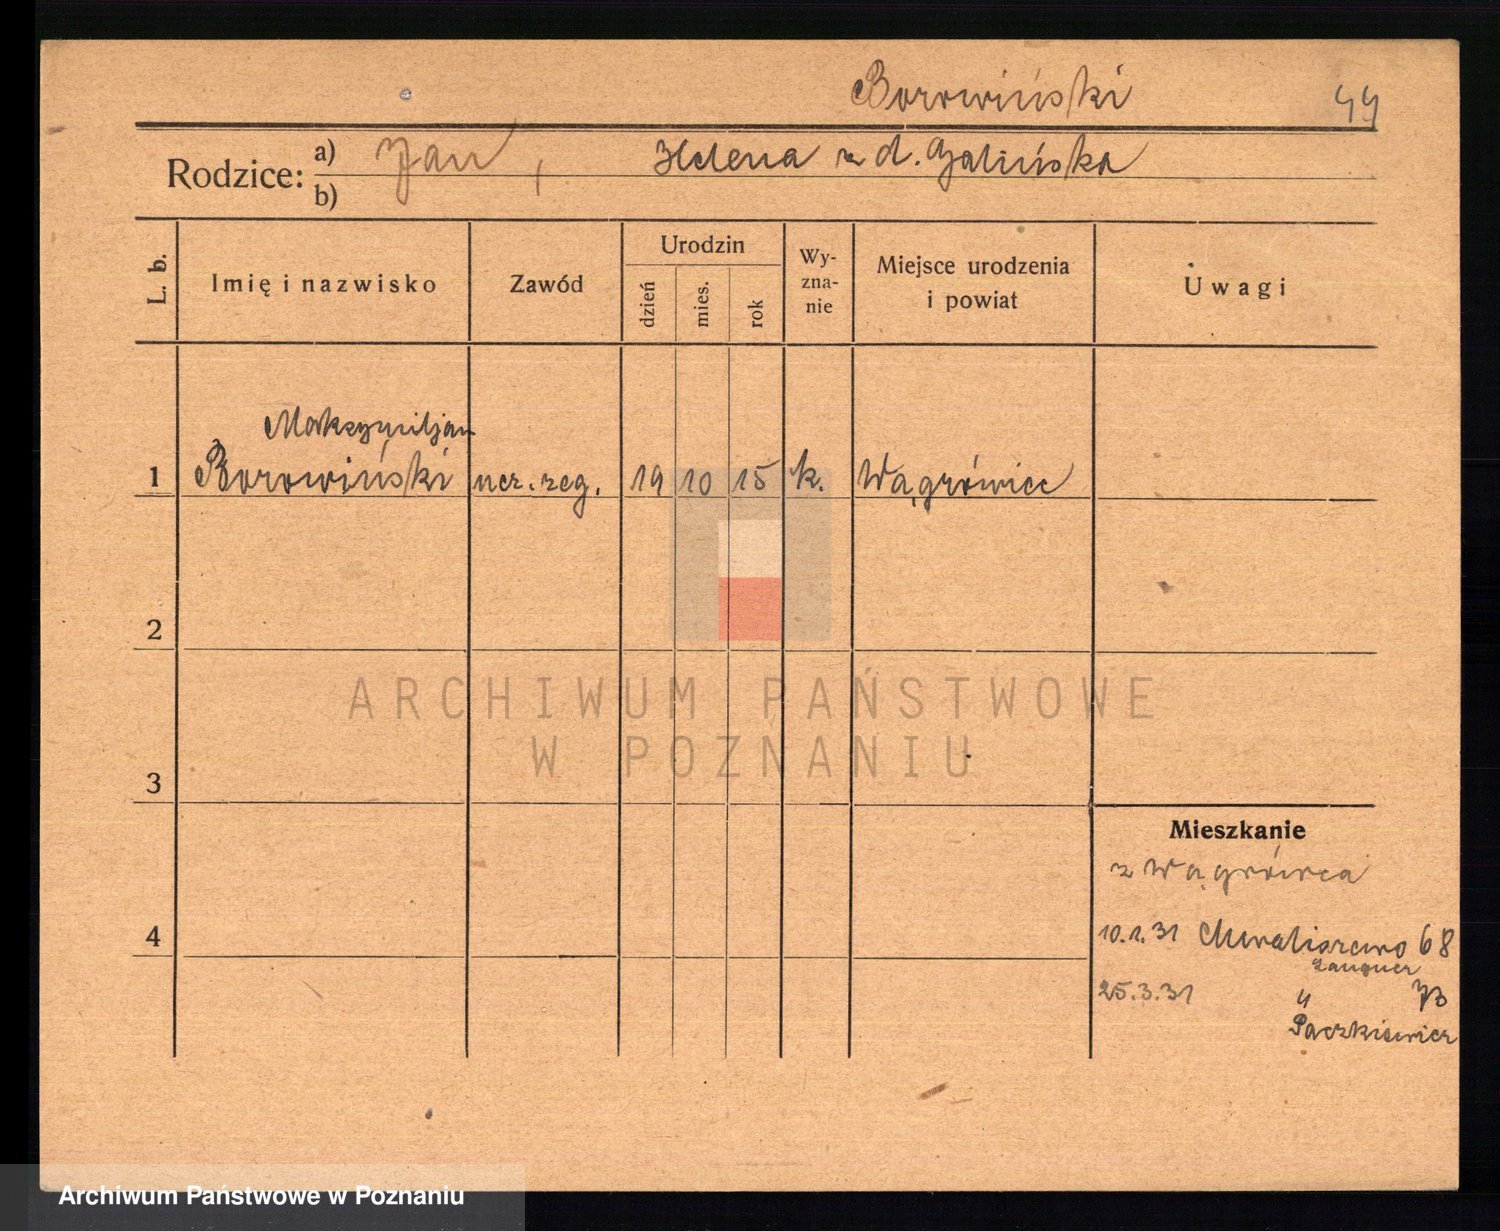 Borowiński 44
Rodzice: a) Jan, Helena z d. Galińska
b)
L. b. Imię i nazwisko Zawód Urodzin dzień mies. rok Wyzna-nie Miejsce urodzenia i powiat Uwagi
Maksymiljan
1 Borowiński ucz. zeg. 19 10 15 k. Wągrówiec
2
ARCHIWUM PAŃSTWOWE
W POZNANIU
3
Mieszkanie
z Wągrówca
4
10.1.31 Chwaliszewo 68
25.3.31 "
Paczkiewicz
Archiwum Państwowe w Poznaniu